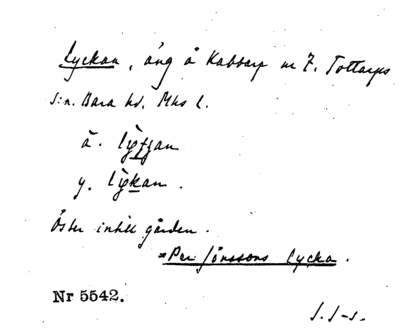 Lyckan, äng å Kabbarp nr 7. Tottarps
s:n. Bara hd. Mhs l.
ä. lỳtjan
y. lỳkan.
Öster intill gården.
= Per Jönssons lycka.
Nr 5542.
J. J-s.